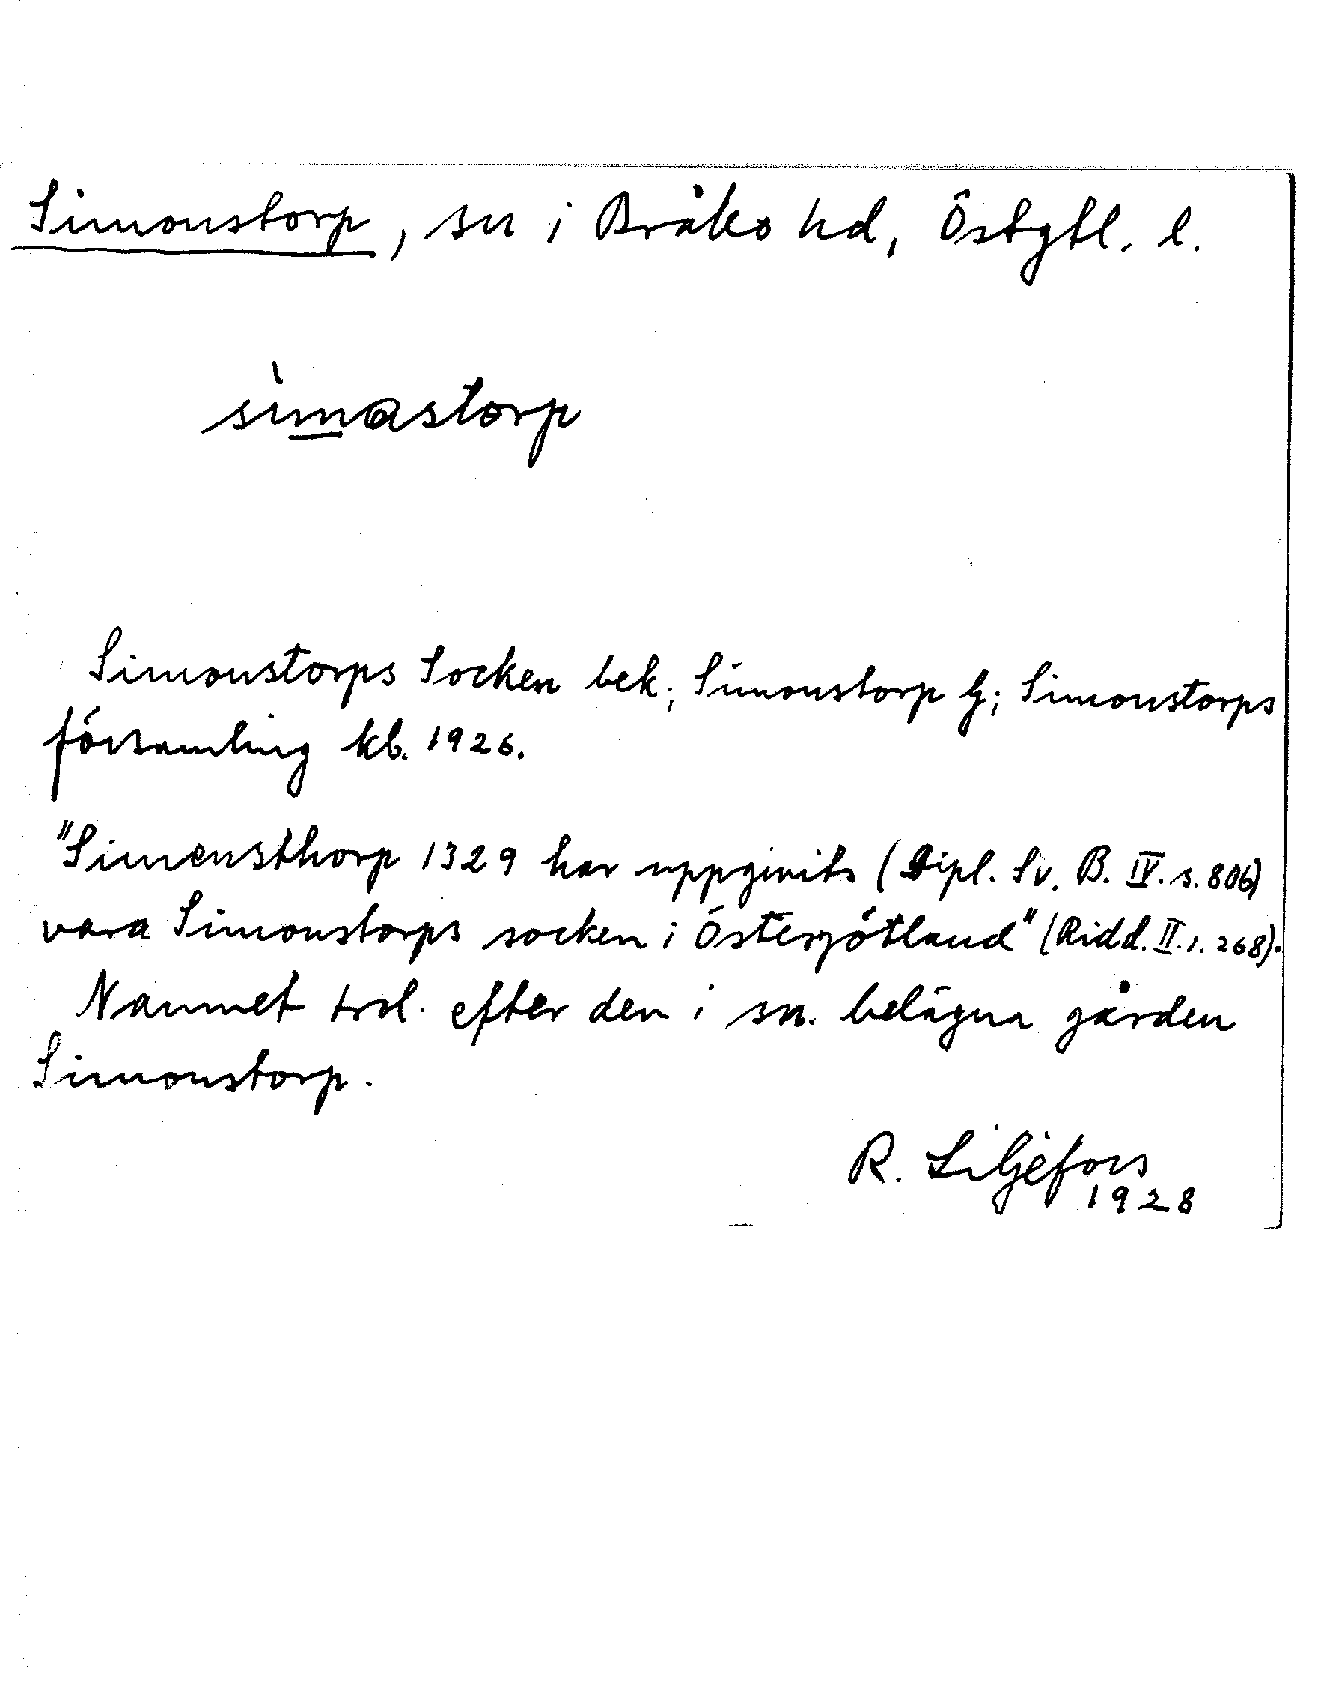 Simonstorp, sn i Bråbo hd, Östgtl. l.
sìmastorp
Simonstorps Socken bek; Simonstorp G; Simonstorps
församling kb. 1926.
"Simensthorp 1329 har uppgivits (Dipl. Sv. B. IV. s. 806)
vara Simonstorps socken i Östergötland" (Ridd. II. s. 268).
Namnet trol. efter den i sn. belägna gården
Simonstorp.
R. Liljefors
1928